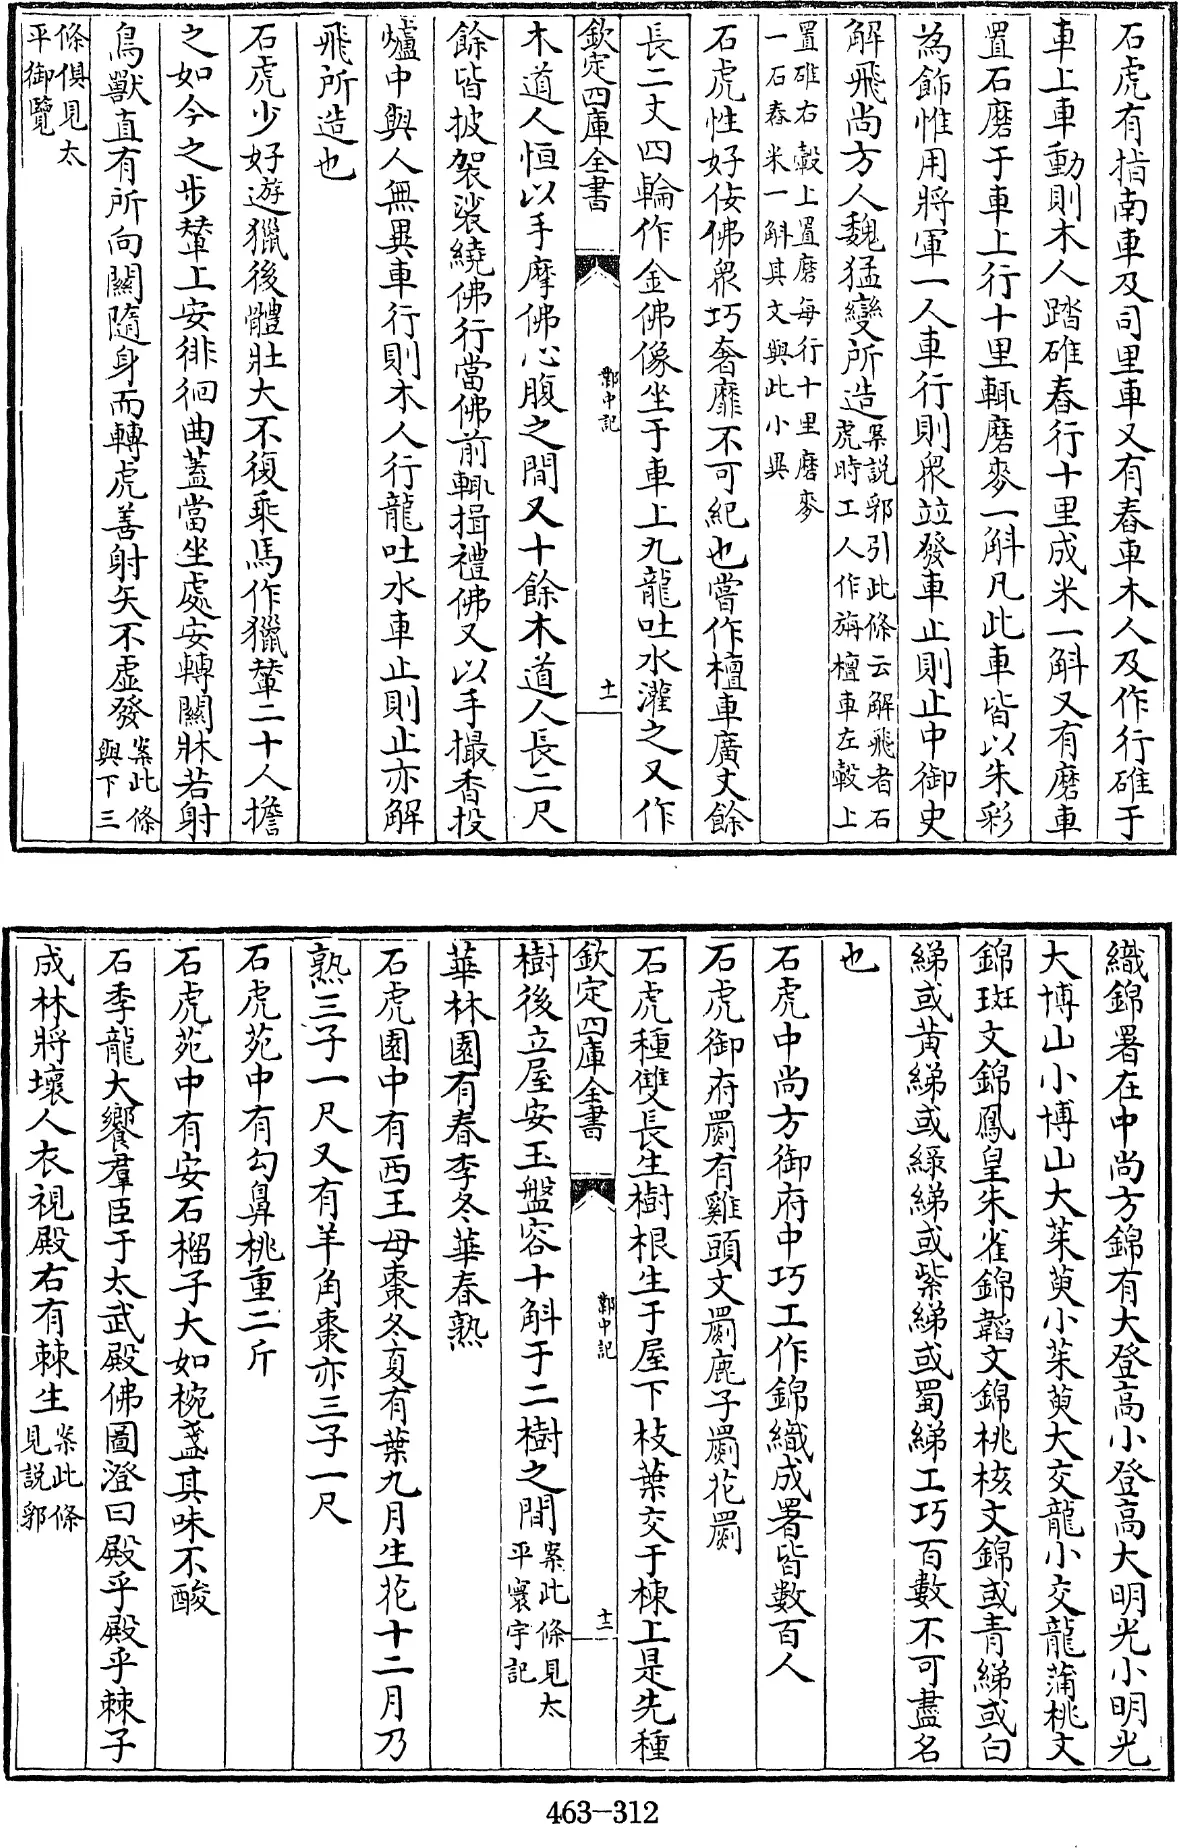 石虎有指南車及司里車又有舂車木人及作行碓于
車上車動則木人踏碓舂行十里成米一斛又有磨車
置石磨于車上行十里輒磨麥一斛凡此車皆以朱彩
為飾惟用將軍一人車行則衆竝發車止則止中御史
解飛尚方人魏猛變所造案說郛引此條云解飛者石
虎時工人作旃檀車左轂上
置碓右轂上置磨每行十里磨麥
一石舂米一斛其文與此小異
石虎性好佞佛衆巧奢靡不可紀也嘗作檀車廣丈餘
長二丈四輪作金佛像坐于車上九龍吐水灌之又作
欽定四庫全書 鄴中記 十一
木道人恒以手摩佛心腹之間又十餘木道人長二尺
餘皆披袈裟繞佛行當佛前輒揖禮佛又以手撮香投
爐中與人無異車行則木人行龍吐水車止則止亦解
飛所造也
石虎少好遊獵後體壯大不復乘馬作獵輦二十人擔
之如今之步輦上安徘徊曲蓋當坐處安轉關牀若射
鳥獸直有所向關隨身而轉虎善射矢不虛發案此條
與下三
條俱見太
平御覽
織錦署在中尚方錦有大登高小登高大明光小明光
大博山小博山大茱萸小茱萸大交龍小交龍蒲桃文
錦斑文錦鳳皇朱雀錦韜文錦桃核文錦或青綈或白
綈或黃綈或綠綈或紫綈或蜀綈工巧百數不可盡名
也
石虎中尚方御府中巧工作錦織成署皆數百人
石虎御府罽有雞頭文罽鹿子罽花罽
石虎種雙長生樹根生于屋下枝葉交于棟上是先種
欽定四庫全書 鄴中記 十二
樹後立屋安玉盤容十斛于二樹之間案此條見太
平寰宇記
華林園有春李冬華春熟
石虎園中有西王母棗冬夏有葉九月生花十二月乃
熟三子一尺又有羊角棗亦三子一尺
石虎苑中有勾鼻桃重二斤
石虎苑中有安石榴子大如椀盞其味不酸
石季龍大饗羣臣于太武殿佛圖澄曰殿乎殿乎棘子
成林將壞人衣視殿右有棘生案此條
見說郛
463-312